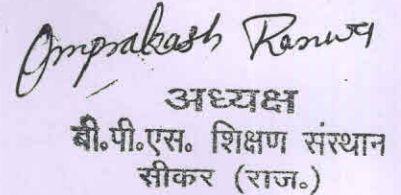 Omprakash Ranwa
अध्यक्ष
बी.पी.एस. शिक्षण संस्थान
सीकर (राज.)